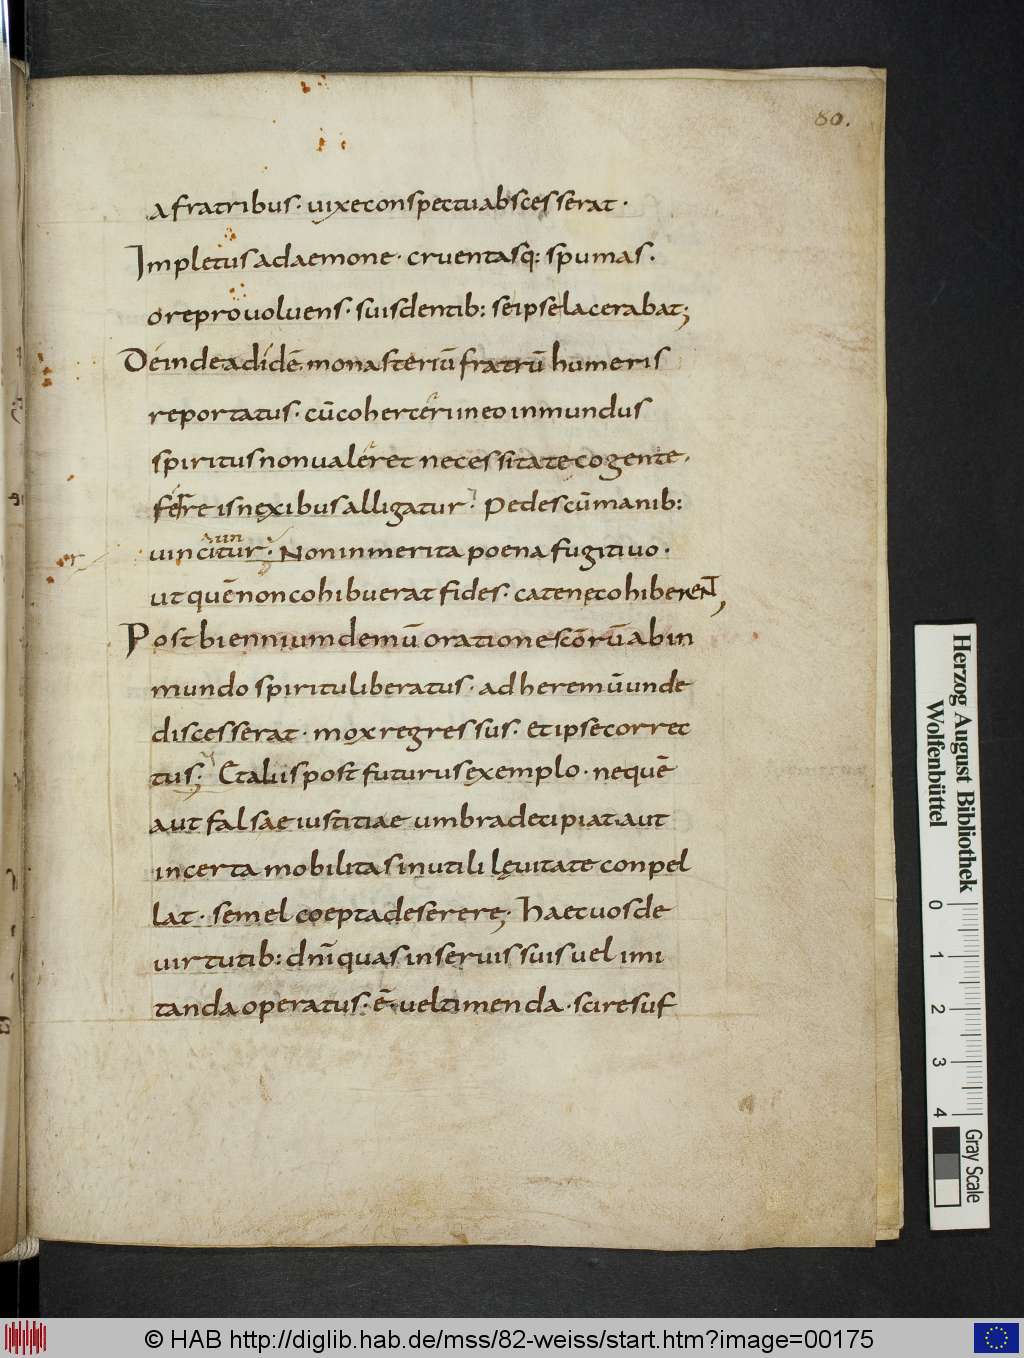 80.
a fratribus· uix e conspectu abscesserat·
Impletus a daemone· cruentasq: spumas·
ore prouoluens· suis dentib: se ipse lacerabat;
Deinde ad idē monasteriū fratrū humeris
reportatus· cū coherceri in eo inmundus
spiritus non ualeret necessitate cogente·
ferreis nexibus alligatur· Pedes cū manib:
uincitur· Non inmerita poena fugitiuo·
ut quē non cohibuerat fides· catenę cohiberent,
Post biennium demū oratione scōrū ab in
mundo spiritu liberatus· ad heremū unde
discesserat· mox regressus· et ipse correc
tus; Et aliis post futurus exemplo· ne quē
aut falsae iustitiae umbra decipiat aut
incerta mobilitas inutili leuitate conpel
lat· semel coepta deserere; Haec uos de
uirtutib: dn̄i quas in seruis suis uel imi
tanda operatus· ē· uel timenda· scire suf
Herzog August Bibliothek
Wolfenbüttel
0 1 2 3 4
Gray Scale
© HAB http://diglib.hab.de/mss/82-weiss/start.htm?image=00175